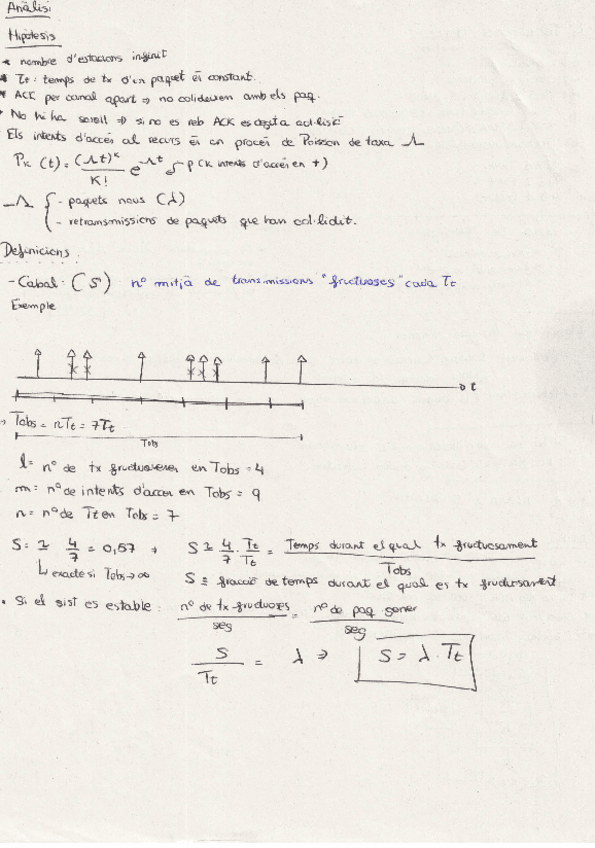 Anàlisi
Hipòtesis
* nombre d'estacions infinit
* Tt: temps de tx d'un paquet és constant.
* ACK per canal apart => no colideixen amb els paq.
No hi ha soroll => si no es reb ACK es degut a col·lisió
Els intents d'accés al recurs és un procés de Poisson de taxa Λ
Pk(t) = (Λt)^k / K! e^-Λt p(K intents d'accés en t)
Λ { - paquets nous (λ)
- retransmissions de paquets que han col·lidit.
Definicions:
- Cabal: (S) nº mitjà de transmissions "fructuoses" cada Tt
Exemple
t
Tobs = nTt = 7Tt
Tobs
l = nº de tx en Tobs = 4
m = nº de intents d'accés en Tobs = 9
n = nº de Tt en Tobs = 7
S = 4/7 = 0,57 S ≃ 4/7 · Tt/Tt = Temps durant el qual tx fructuosament / Tobs
exacte si Tobs → ∞ S ≡ fracció de temps durant el qual es tx fructuosament
• Si el sist es estable: nº de tx fructuoses / seg = nº de paq gener / seg
S / Tt = λ => S = λ · Tt